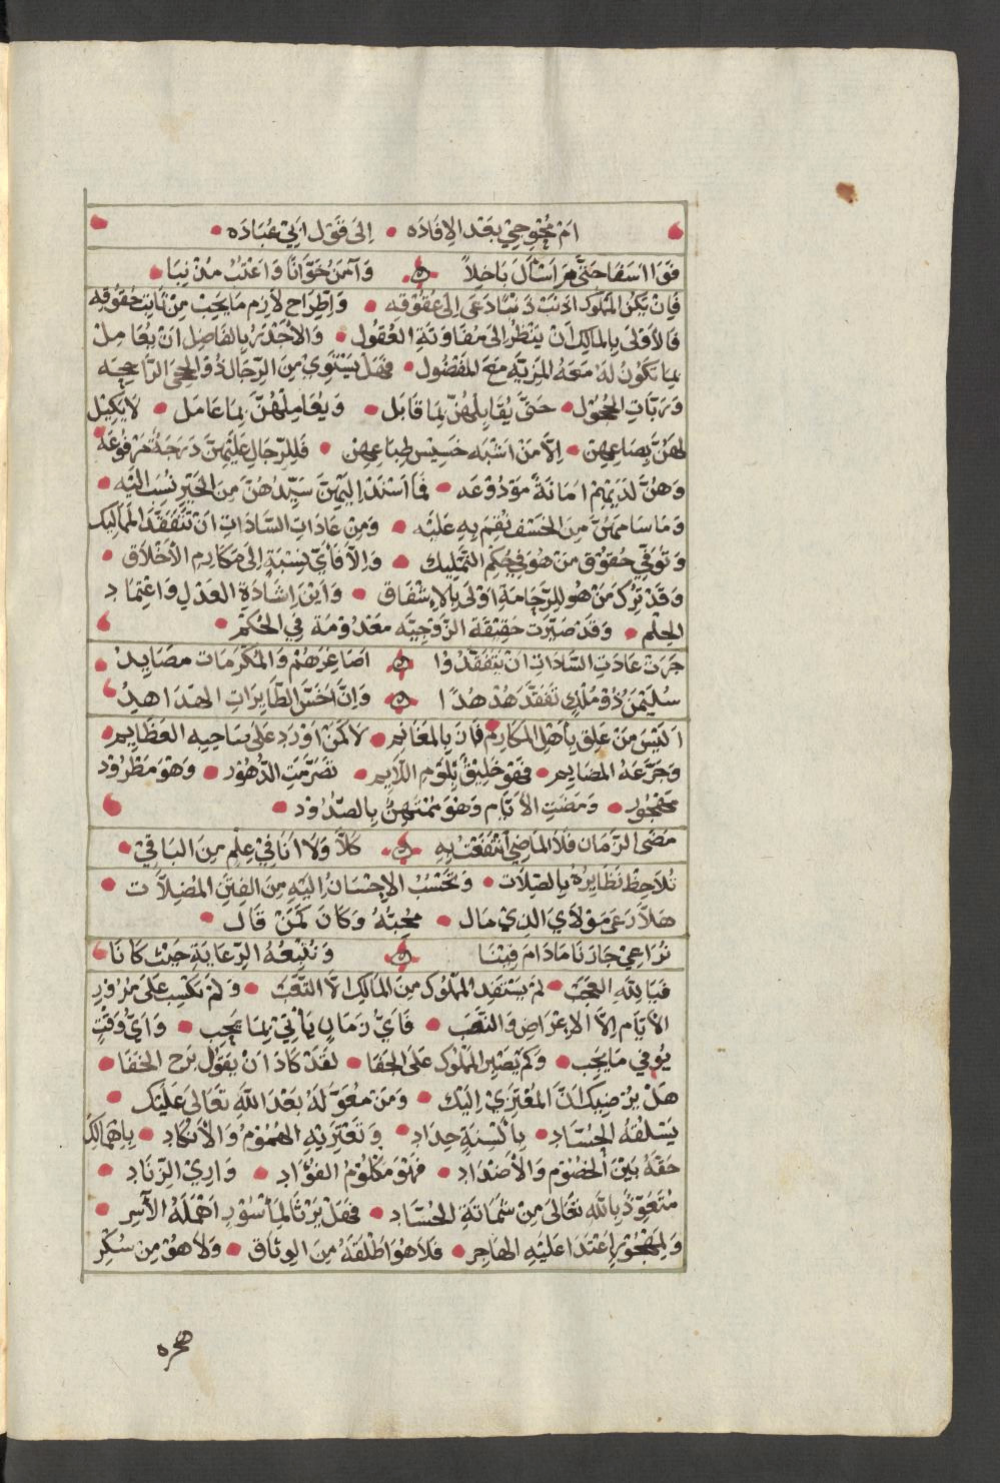 ام محوجي بعد الافاده • الى قول ابي عباده •
فوا اسفا حتى م اسأل باخلاً وآمن خوانا واعتب مذنبا
فان يكن المملوك اذنب ذنبا دعى الى عقوقه • واطراح لازم ما يجب من ثابت حقوقه
فالاولى بالمالك ان ينظر الى مفاوتة العقول • والاجدر بالفاضل ان يعامل
بما تكون له معه المزية مع المفضول • فهل يستوي من الرجال ذو الحجى الراجحه
وربات الحجول • حتى يقابلهن بما قابل • ويعاملهن بما عامل • لا يكيل
لهن بصاعهن • الا من اشبه خسيس طباعهن • فللرجال عليهن درجة مرفوعه
وهن لديهم امانة مودوعه • فما اسند اليهن سيدهن من الخير نسب اليه •
وما سامهن من الخسف نقم به عليه • ومن عادات السادات ان تتفقد المماليك
وتوفي حقوق من هو في حكم التمليك • والا فأي نسبة الى مكارم الاخلاق •
وقد ترك من هو للرجامة اولى بالاشفاق • واين اشادة العدل واعتماد
الحلم • وقد صيرت حقيقة الزوجيه معدومة في الحكم •
جرت عادت السادات ان يتفقدوا اصاغرهم والمكرمات مصايد
سليمن ذو ملك تفقد هدهدا وان اخس الطايرات الهداهد
اليس من علق باهل المكارم فان بالمغانم • لا كمن اورد على ساحيه العظايم •
وجرعه المضايم • فهو خليق بلوم اللايم • تصرمت الدهور • وهو مطرود
مهجور • ومضت الايام وهو ممتهن بالصدود •
مضى الزمان فلا الماضي انتفعت به كلا ولا انا في علم من الباقي •
تلاحظ نظايره بالصلات • وتحسب الاحسان اليه من الفتن المضلات •
هلا رعى مولاي الذي مال • محبته وكان كمن قال •
نراعي جارنا مادام فينا ونتبعه الرعاية حيث كانا
فيا لله العجب • لم يستفد المملوك من المالك الا التعب • ولم تكسب على مرور
الايام الا الاعراض والنصب • فاي زمان يأتي بما يجب • واي وقت
يوفي ما يجب • وكم يصبر المملوك على الجفا • لقد كاد ان يقول برح الخفا •
هل يرضيك ان المعتزي اليك • ومن معول له بعد الله تعالى عليك •
يسلقه الحساد • بالسنة حداد • وتعتريه الهموم والانكاد • باهمالك
حقه بين الخصوم والاضداد • فهو مكلوم الفؤاد • واري الزناد •
متعوذ بالله تعالى من شماتة الحساد • فهل يرثا لمأسور اهمله الآسر •
ولمهجور اعتدا عليه الهاجر • فلا هو اطلقه من الوثاق • ولا هو من سكر
هجره